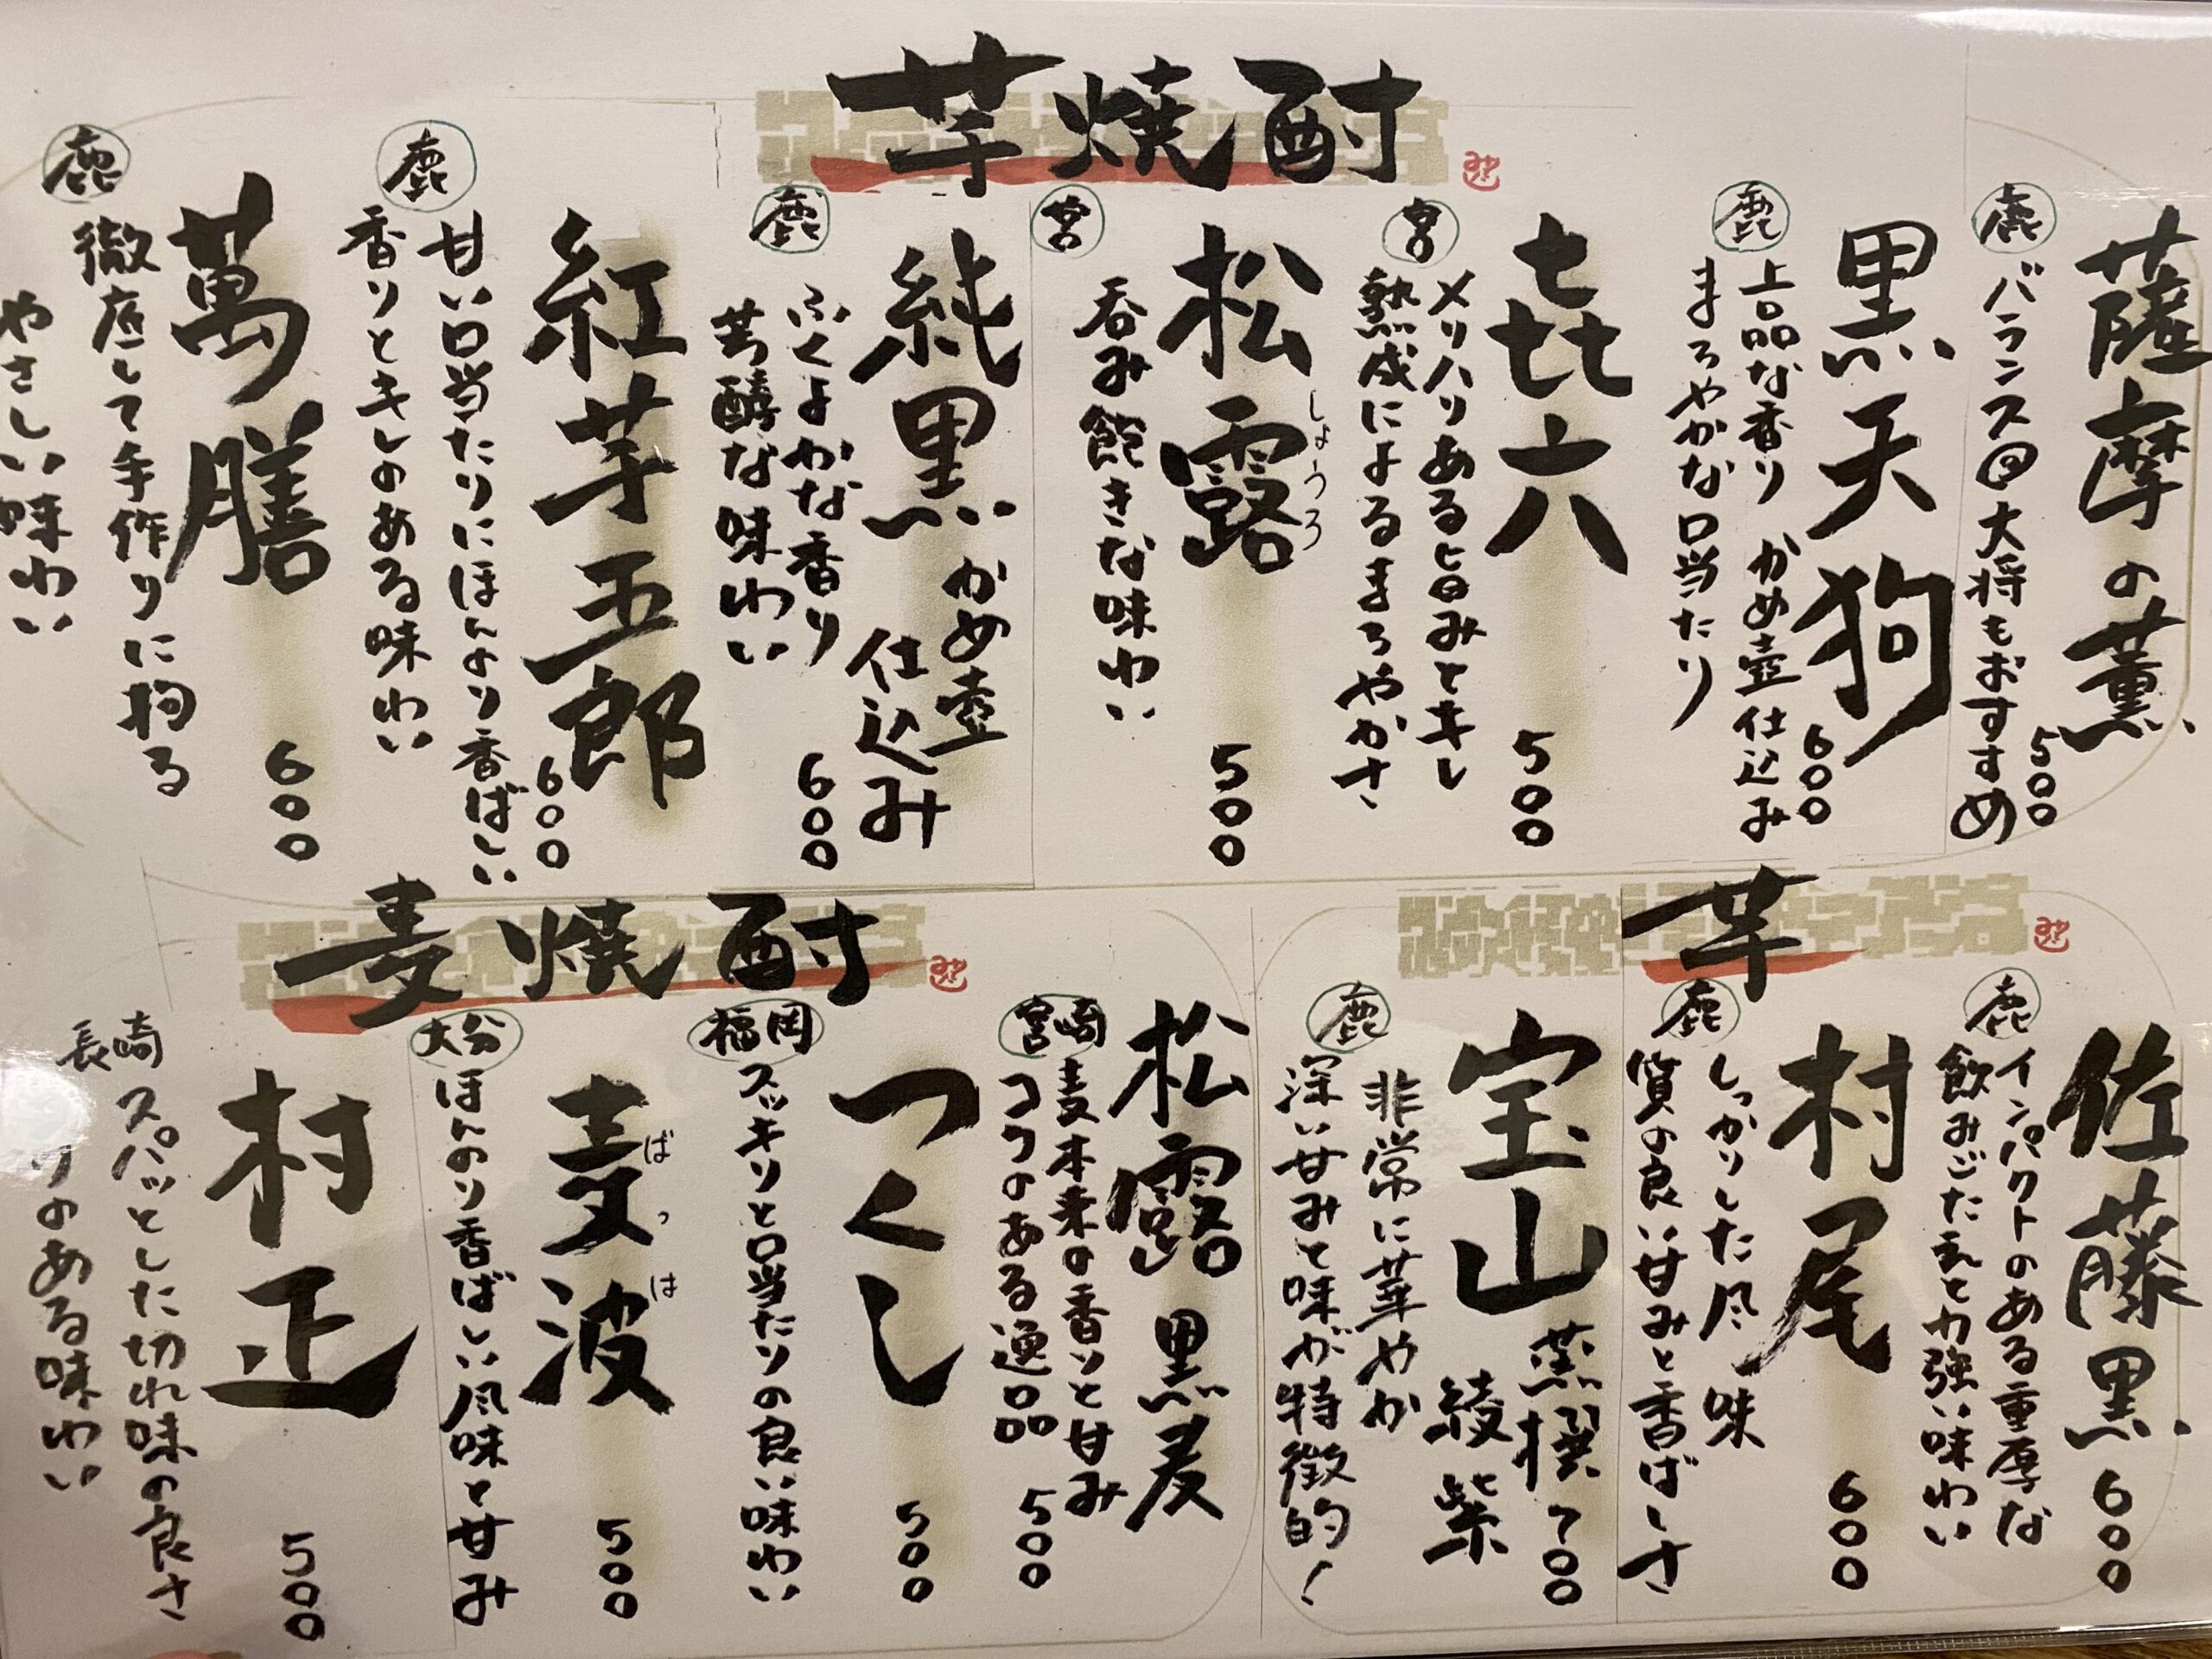 芋焼酎
薩摩の薫
500
鹿
バランス◎大将もおすすめ
黒天狗
600
鹿
上品な香り かめ壺仕込み
まろやかな口当たり
㐂六
500
宮
メリハリある旨みとキレ
熟成によるまろやかさ
松露
しょうろ
500
宮
呑み飽きな味わい
純黒
かめ壺
仕込み
600
鹿
ふくよかな香り
芳醇な味わい
紅芋五郎
600
鹿
甘い口当たりにほんのり香ばしい
香りとキレのある味わい
萬膳
600
鹿
徹底して手作りに拘る
やさしい味わい
芋
佐藤黒
600
鹿
インパクトのある重厚な
飲みごたえと力強い味わい
村尾
600
鹿
しっかりした風味
質の良い甘みと香ばしさ
宝山
蒸撰
綾紫
700
鹿
非常に華やか
深い甘みと味が特徴的!
麦焼酎
松露
黒麦
500
宮崎
麦本来の香りと甘み
コクのある逸品
つくし
500
福岡
スッキリと口当たりの良い味わい
麦波
ばっは
500
大分
ほんのり香ばしい風味と甘み
村正
500
長崎
スパッとした切れ味の良さ
りのある味わい